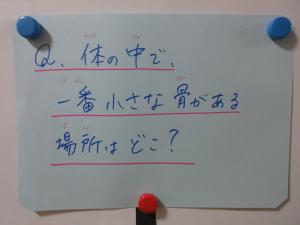 Q、体の中で、
一番小さな骨がある
場所はどこ?